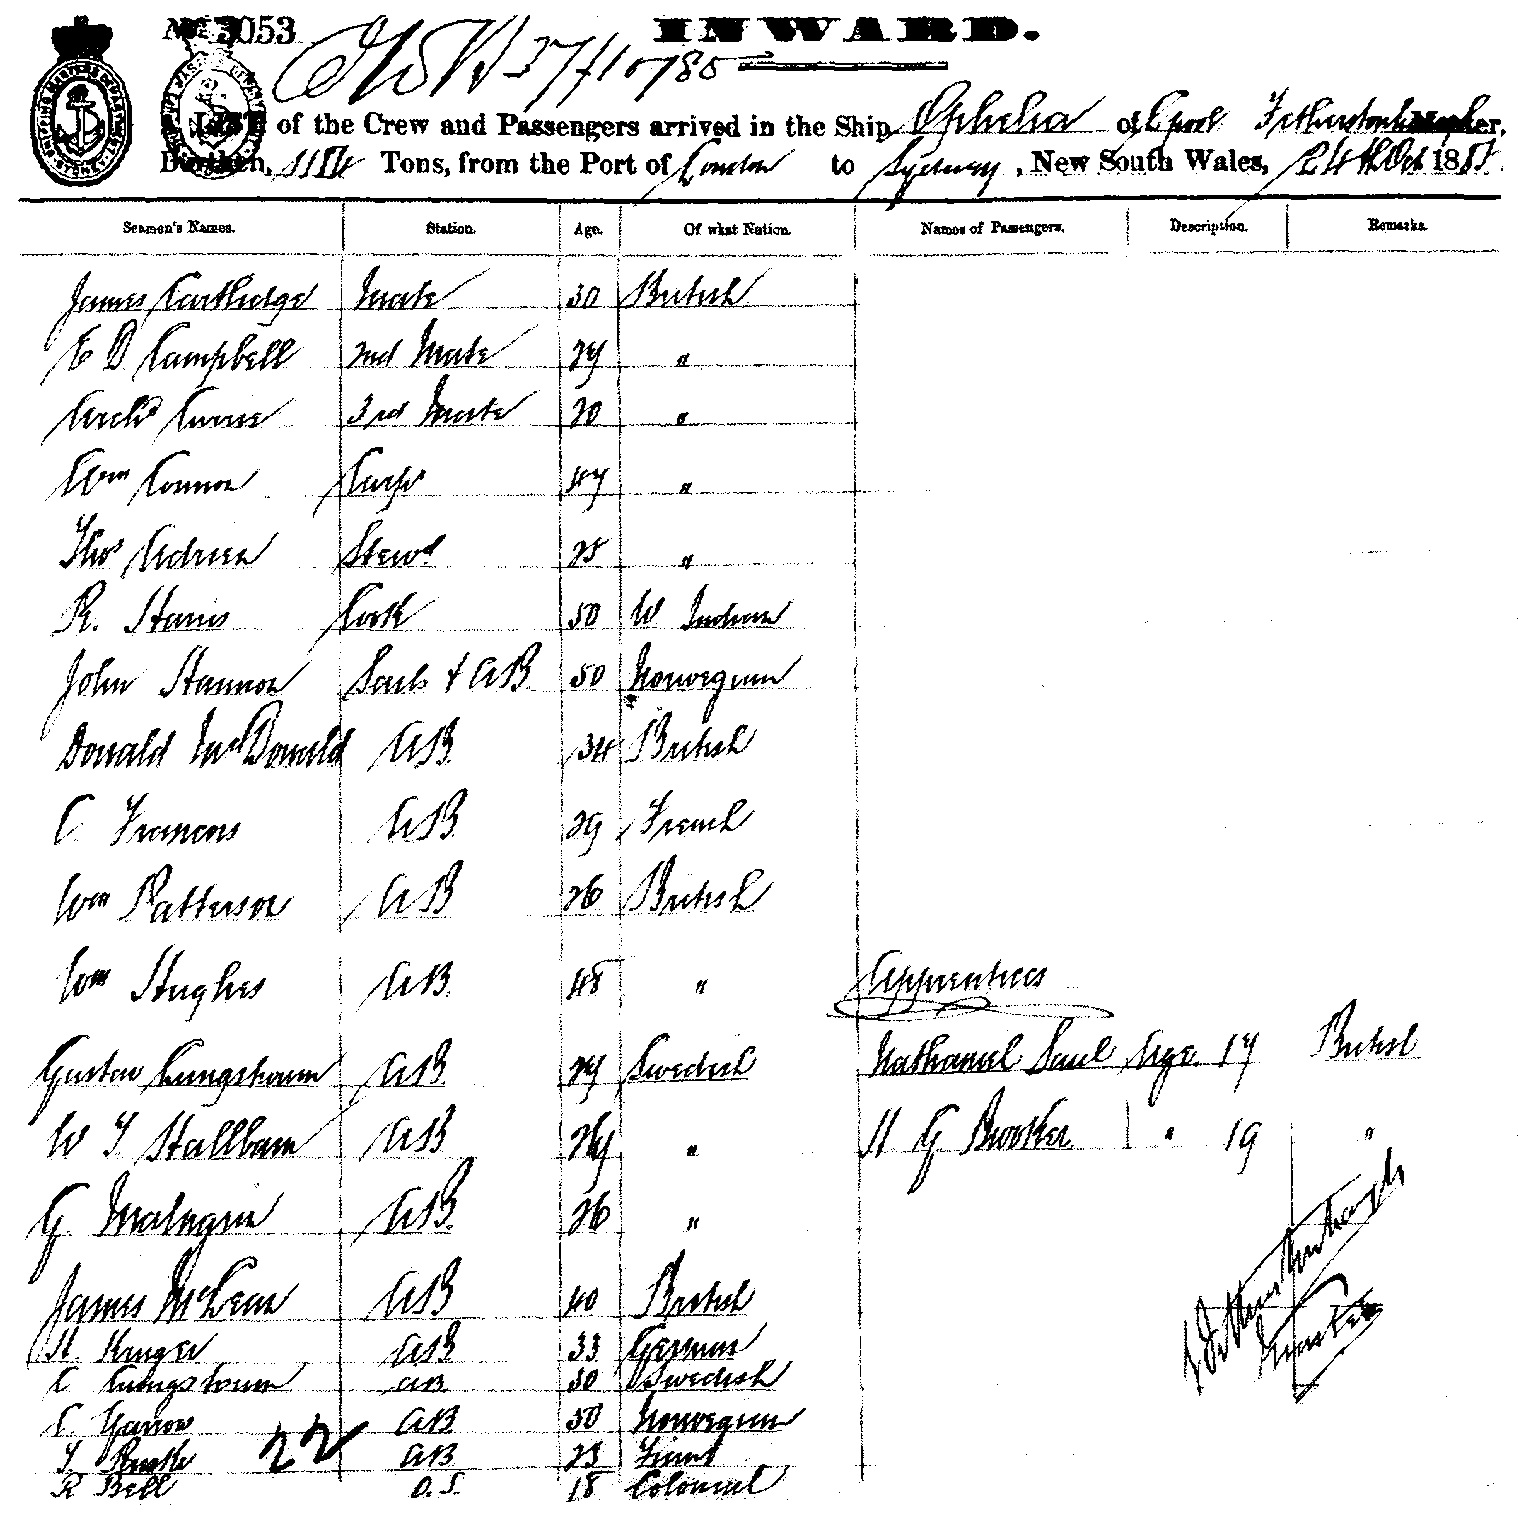 No. 3053
INWARD.
A LIST of the Crew and Passengers arrived in the Ship Ophelia of Lpool Master,
Burthen, Tons, from the Port of London to Sydney, New South Wales, 24th Oct 188
Seamen's Names. Station. Age. Of what Nation. Names of Passengers. Description. Remarks.
James Cartlidge Mate 30 British
E D Campbell 2nd Mate 27 "
Archd Currie 3rd Mate 20 "
Wm Connon Carpr 47 "
Thos Stewd 25 "
R. Harris Cook 50 W Indian
John Hannon Sails & AB 50 Norwegian
Donald McDonald AB 34 British
C. Francois AB 29 French
Wm Patterson AB 26 British
Wm Hughes AB 48 " Apprentices
Gustav AB 27 Swedish Nathaniel Saul Age. 17 British
W T Hallbam AB " H G Brooker " 19 "
G. Malmgrin AB 26 "
James McLean AB 40 British
H. Kruger AB 33 German
C AB 30 Swedish
AB 50 Norwegian
22
AB 23
R Bell O.S. 18 Colonial